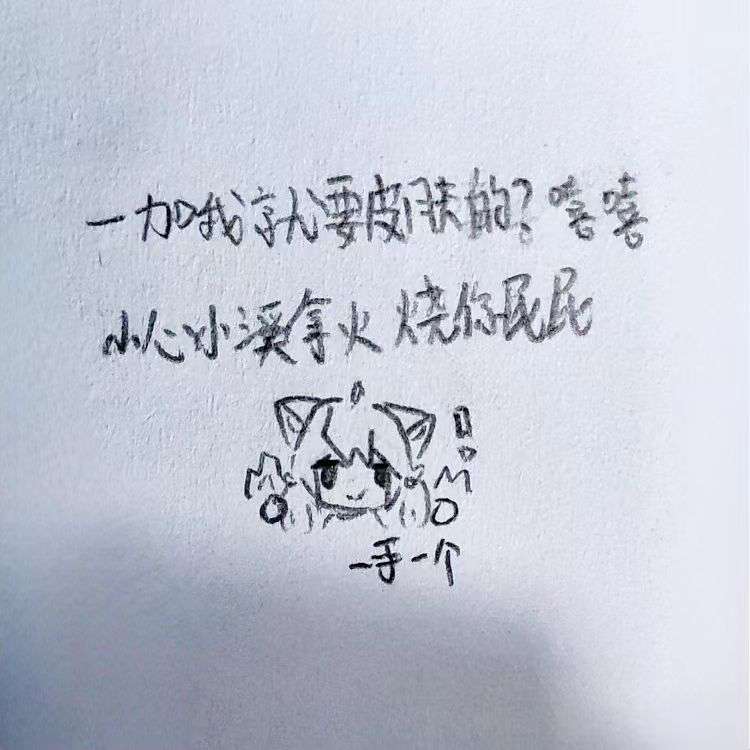 一加我就要皮肤的？嘻嘻
小心小溪拿火烧你屁屁
一手一个